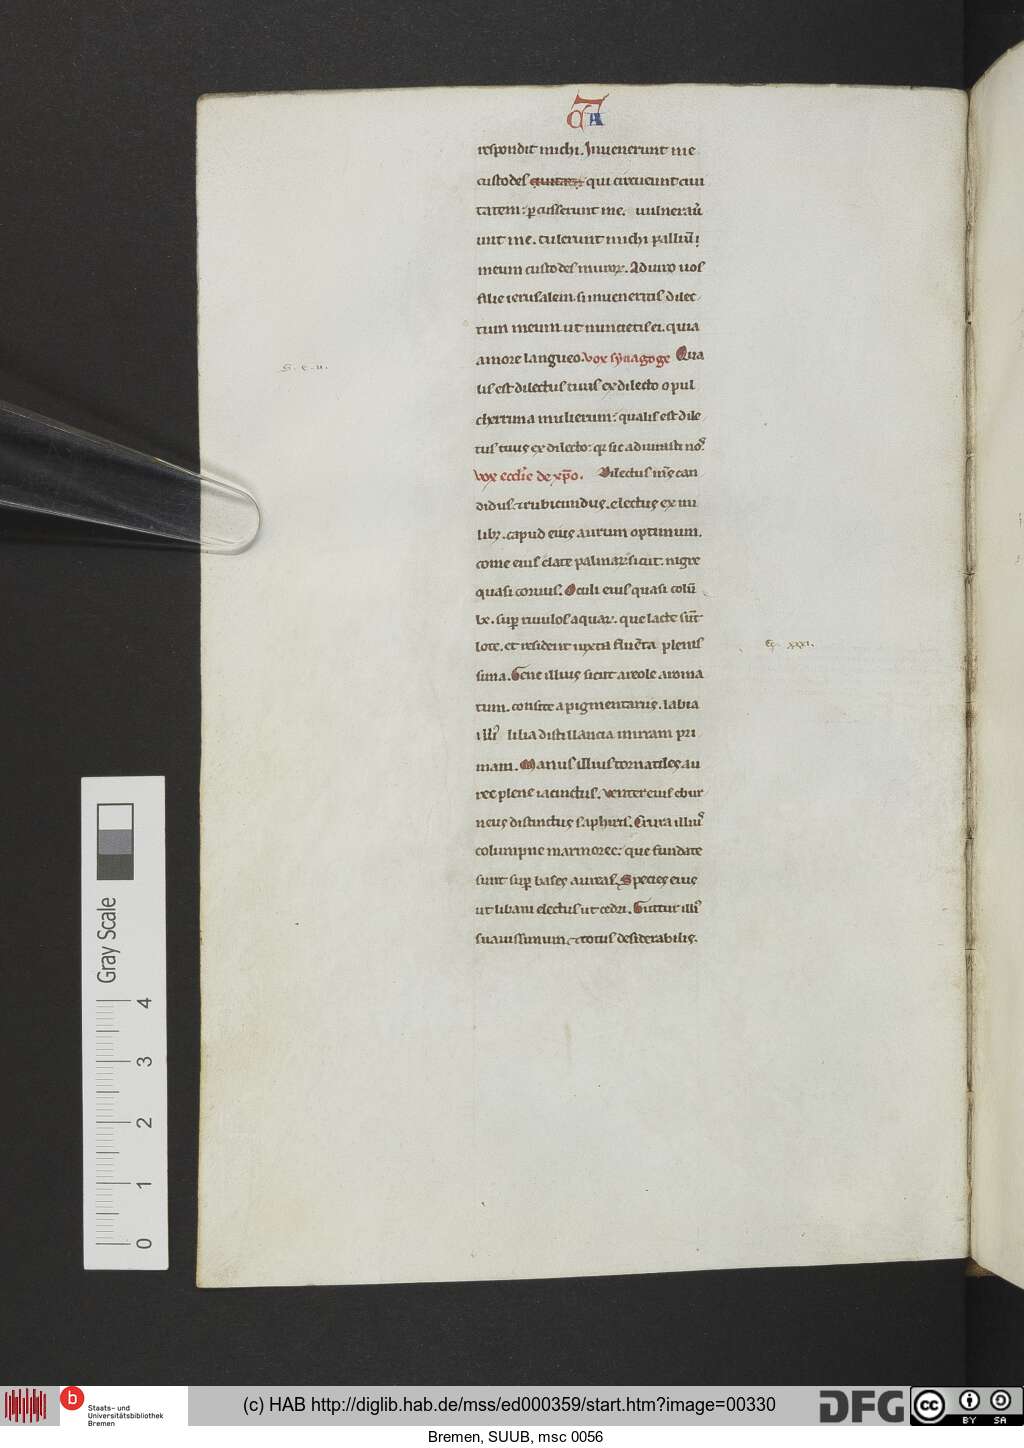 CA
respondit michi. Inuenerunt me
custodes ciuitatis qui circueunt ciui
tatem: ꝑcusserunt me. uulnerau̅
unt me. tulerunt michi palliu̅
meum custodes muroꝝ. Adiuro uos
filie ierusalem. si inueneritis dilec
tum meum ut nuncietis ei. quia
amore langueo. vox synagoge Qua
lis est dilectus tuus ex dilecto o pul
cherrima mulierum: qualis est dile
tus tuus ex dilecto: qꝛ sic adiurasti noꝰ.
vox eccl̅ie de xp̅o. Dilectus m̅s can
didus ⁊ rubicundus. electus ex mi
libꝫ. capud eius aurum optimum.
come eius elate palmaꝝ sicut: nigre
quasi coruus. Oculi eius quasi colu̅
be. suꝑ riuulos aquaꝝ. que lacte su̅t
lote. et resident iuxta flue̅ta plenis
sima. Gene illius sicut areole aroma
tum. consite a pigmentariis. labia
illiꝰ lilia distillancia mirram pri
mam. Manus illius tornatiles au
ree plene iacinctis. venter eius ebur
neus distinctus saphiris. Crura illiuꝰ
columpne marmoree: que fundate
sunt suꝑ bases aureas. Species eius
ut libani electus ut cedri. Guttur illiꝰ
suauissimum ⁊ totus desiderabilis.
S. e. u.
Eẏ. xxxi.
Gray Scale
4
3
2
1
0
b
Staats- und
Universitätsbibliothek
Bremen
(c) HAB http://diglib.hab.de/mss/ed000359/start.htm?image=00330
DFG
cc
BY SA
Bremen, SUUB, msc 0056